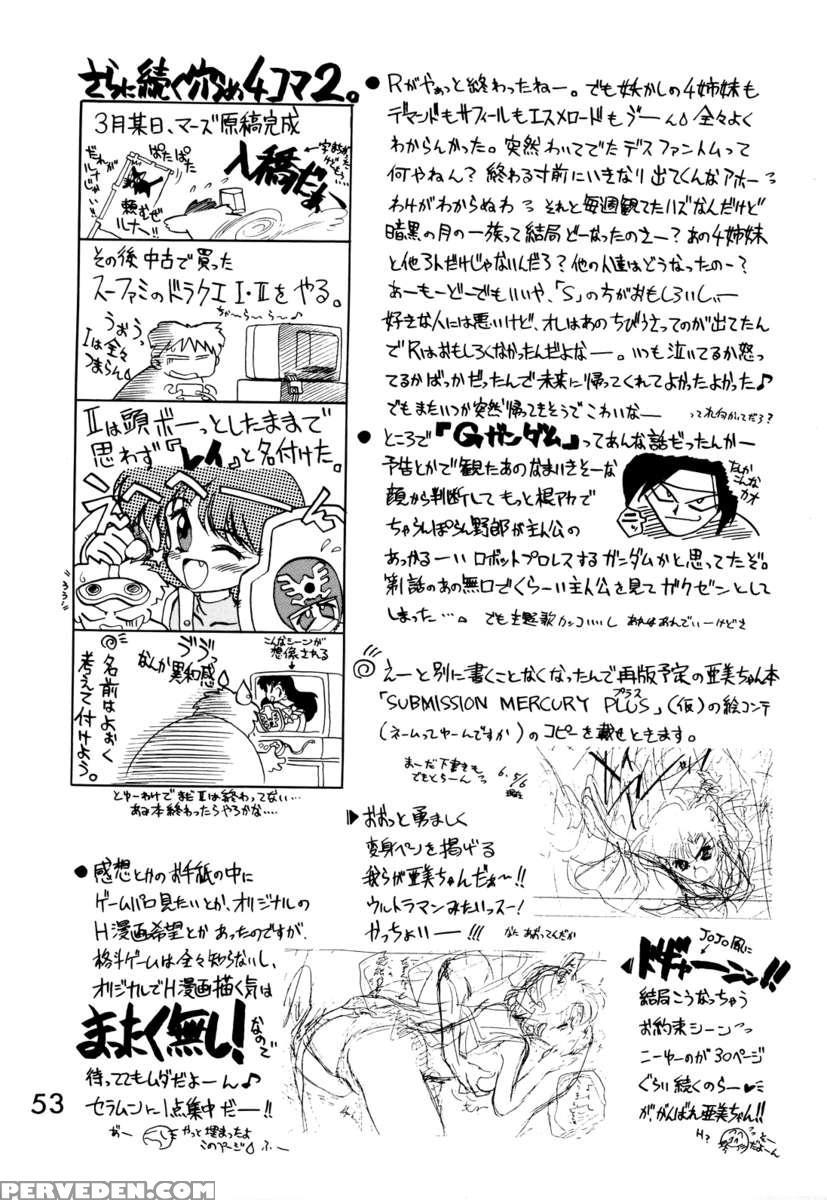 さらに続く穴うめ4コマ2。
3月某日、マーズ原稿完成
入稿だぁ
ぱたぱた
だれがルナじゃ
頼むぜルナー!
その後 中古で買った
スーファミのドラクエI・IIをやる。
ちゃーらーらー♪
うおぅっ
Iは全々
つまらん
IIは頭ボーっとしたままで
思わず『レイ』と名付けた。
こんなシーンが
想像される
なんか異和感
名前はよおく
考えて付けよう。
とゆーわけでまだIIは終わってない…
あの本終わったらやろかな…
●Rがやぁっと終わったねー。でも妖かしの4姉妹も
デマンドもサフィールもエスメロードもゔーん 全々よく
わからんかった。突然わいてでたデスファントムって
何やねん? 終わる寸前にいきなり出てくんなアホー
わけがわからぬわ それと毎週観てたハズなんだけど
暗黒の月の一族って結局どーなったのさー?あの4姉妹
と他3人だけじゃないんだろ?他の人達はどうなったのー?
あーもーどーでもいいや、「S」の方がおもしろいしぃー
好きな人には悪いけど、オレはあのちびうさってのが出てたん
でRはおもしろくなかったんだよなー。いつも泣いてるか怒っ
てるかばっかだったんで未来に帰ってくれてよかったよかった♪
でもまたいつか突然帰ってきそうでこわいなー
って何がってだろ?
●ところで『Gガンダム』ってあんな話だったんかー
予告とかで観たあのなまいきそーな
顔から判断してもっと根アカで
ちゃらんぽらん野郎が主人公の
あっかるーいロボットプロレスするガンダムかと思ってたぞ。
第1話のあの無口でくらーい主人公を見てガクゼンとして
しまった…。
でも主題歌カッコいいし
なんか
こんな
カオ
えーと別に書くことなくなったんで再版予定の亜美ちゃん本
「SUBMISSION MERCURY PLUS」(仮)の絵コンテ
プラス
(ネームってゆーんですか)のコピーを載せときます。
まーだ下書きも
でもとらーん
6.5/6
現在
▶おおっと勇ましく
変身ペンを掲げる
我らが亜美ちゃんだぁ〜!!
ウルトラマンみたいっスー!
かっちょいー!!!
●感想とかのお手紙の中に
ゲームパロ見たいとか、オリジナルの
H漫画希望とかあったのですが、
格斗ゲームは全々知らないし、
オリジナルでH漫画描く気は
まったく無し!なので
待っててもムダだよーん♪
セラムンに1点集中だー!!
やっと埋まったよ
このページ
ふー
JOJO風に
◀ドギャーーン!!
結局こうなっちゃう
お約束シーン
こーゆーのが30ページ
ぐらい続くのらー
がんばれ亜美ちゃん!!
H?
53
PERVEDEN.COM